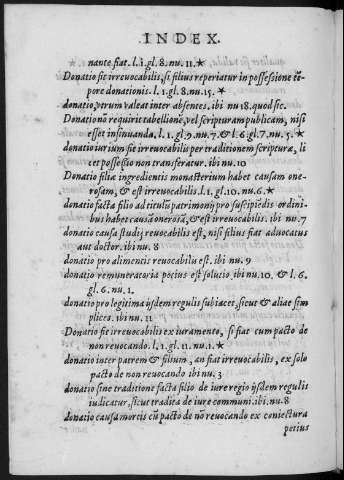 INDEX.
nante fiat. l.1.gl.8.nu.11.★
Donatio fit irreuocabilis, si filius reperiatur in possessione tẽ-
pore donationis. l.1.gl.8.nu.15. ★
donatio, vtrum valeat inter absentes. ibi nu 18. quod sic.
Donatio nõ requirit tabellionẽ, vel scripturam publicam, nisi
esset insinuanda. l.1.gl.9.nu.7. & l.6.gl.7.nu.5.★
donatio iurium fit irreuocabilis per traditionem scripturæ, li
cet possessio non transferatur. ibi nu.10
Donatio filiæ ingredientis monasterium habet causam one-
rosam, & est irreuocabilis. l.1.gl.10.nu.6.★
donatio facta filio ad titulũ patrimonij pro suscipiẽdis ordini-
bus habet causã onerosã, & est irreuocabilis. ibi nu.7
donatio causa studij reuocabilis est, nisi filius fiat aduocatus
aut doctor. ibi nu.8
donatio pro alimentis reuocabilis est. ibi nu.9
donatio remuneratoria potius est solutio. ibi nu.10. & l.6.
gl.6.nu.1.
donatio pro legitima ijsdem regulis subiacet, sicut & aliæ sim
plices. ibi nu.11
Donatio fit irreuocabilis ex iuramento, si fiat cum pacto de
non reuocando. l.1.gl.11.nu.1.★
donatio inter patrem & filium, an fiat irreuocabilis, ex solo
pacto de non reuocando ibi nu.3
donatio sine traditione facta filio de iure regio ijsdem regulis
iudicatur, sicut tradita de iure communi. ibi.nu.8
donatio causa mortis cũ pacto de nõ reuocando ex coniectura
potius